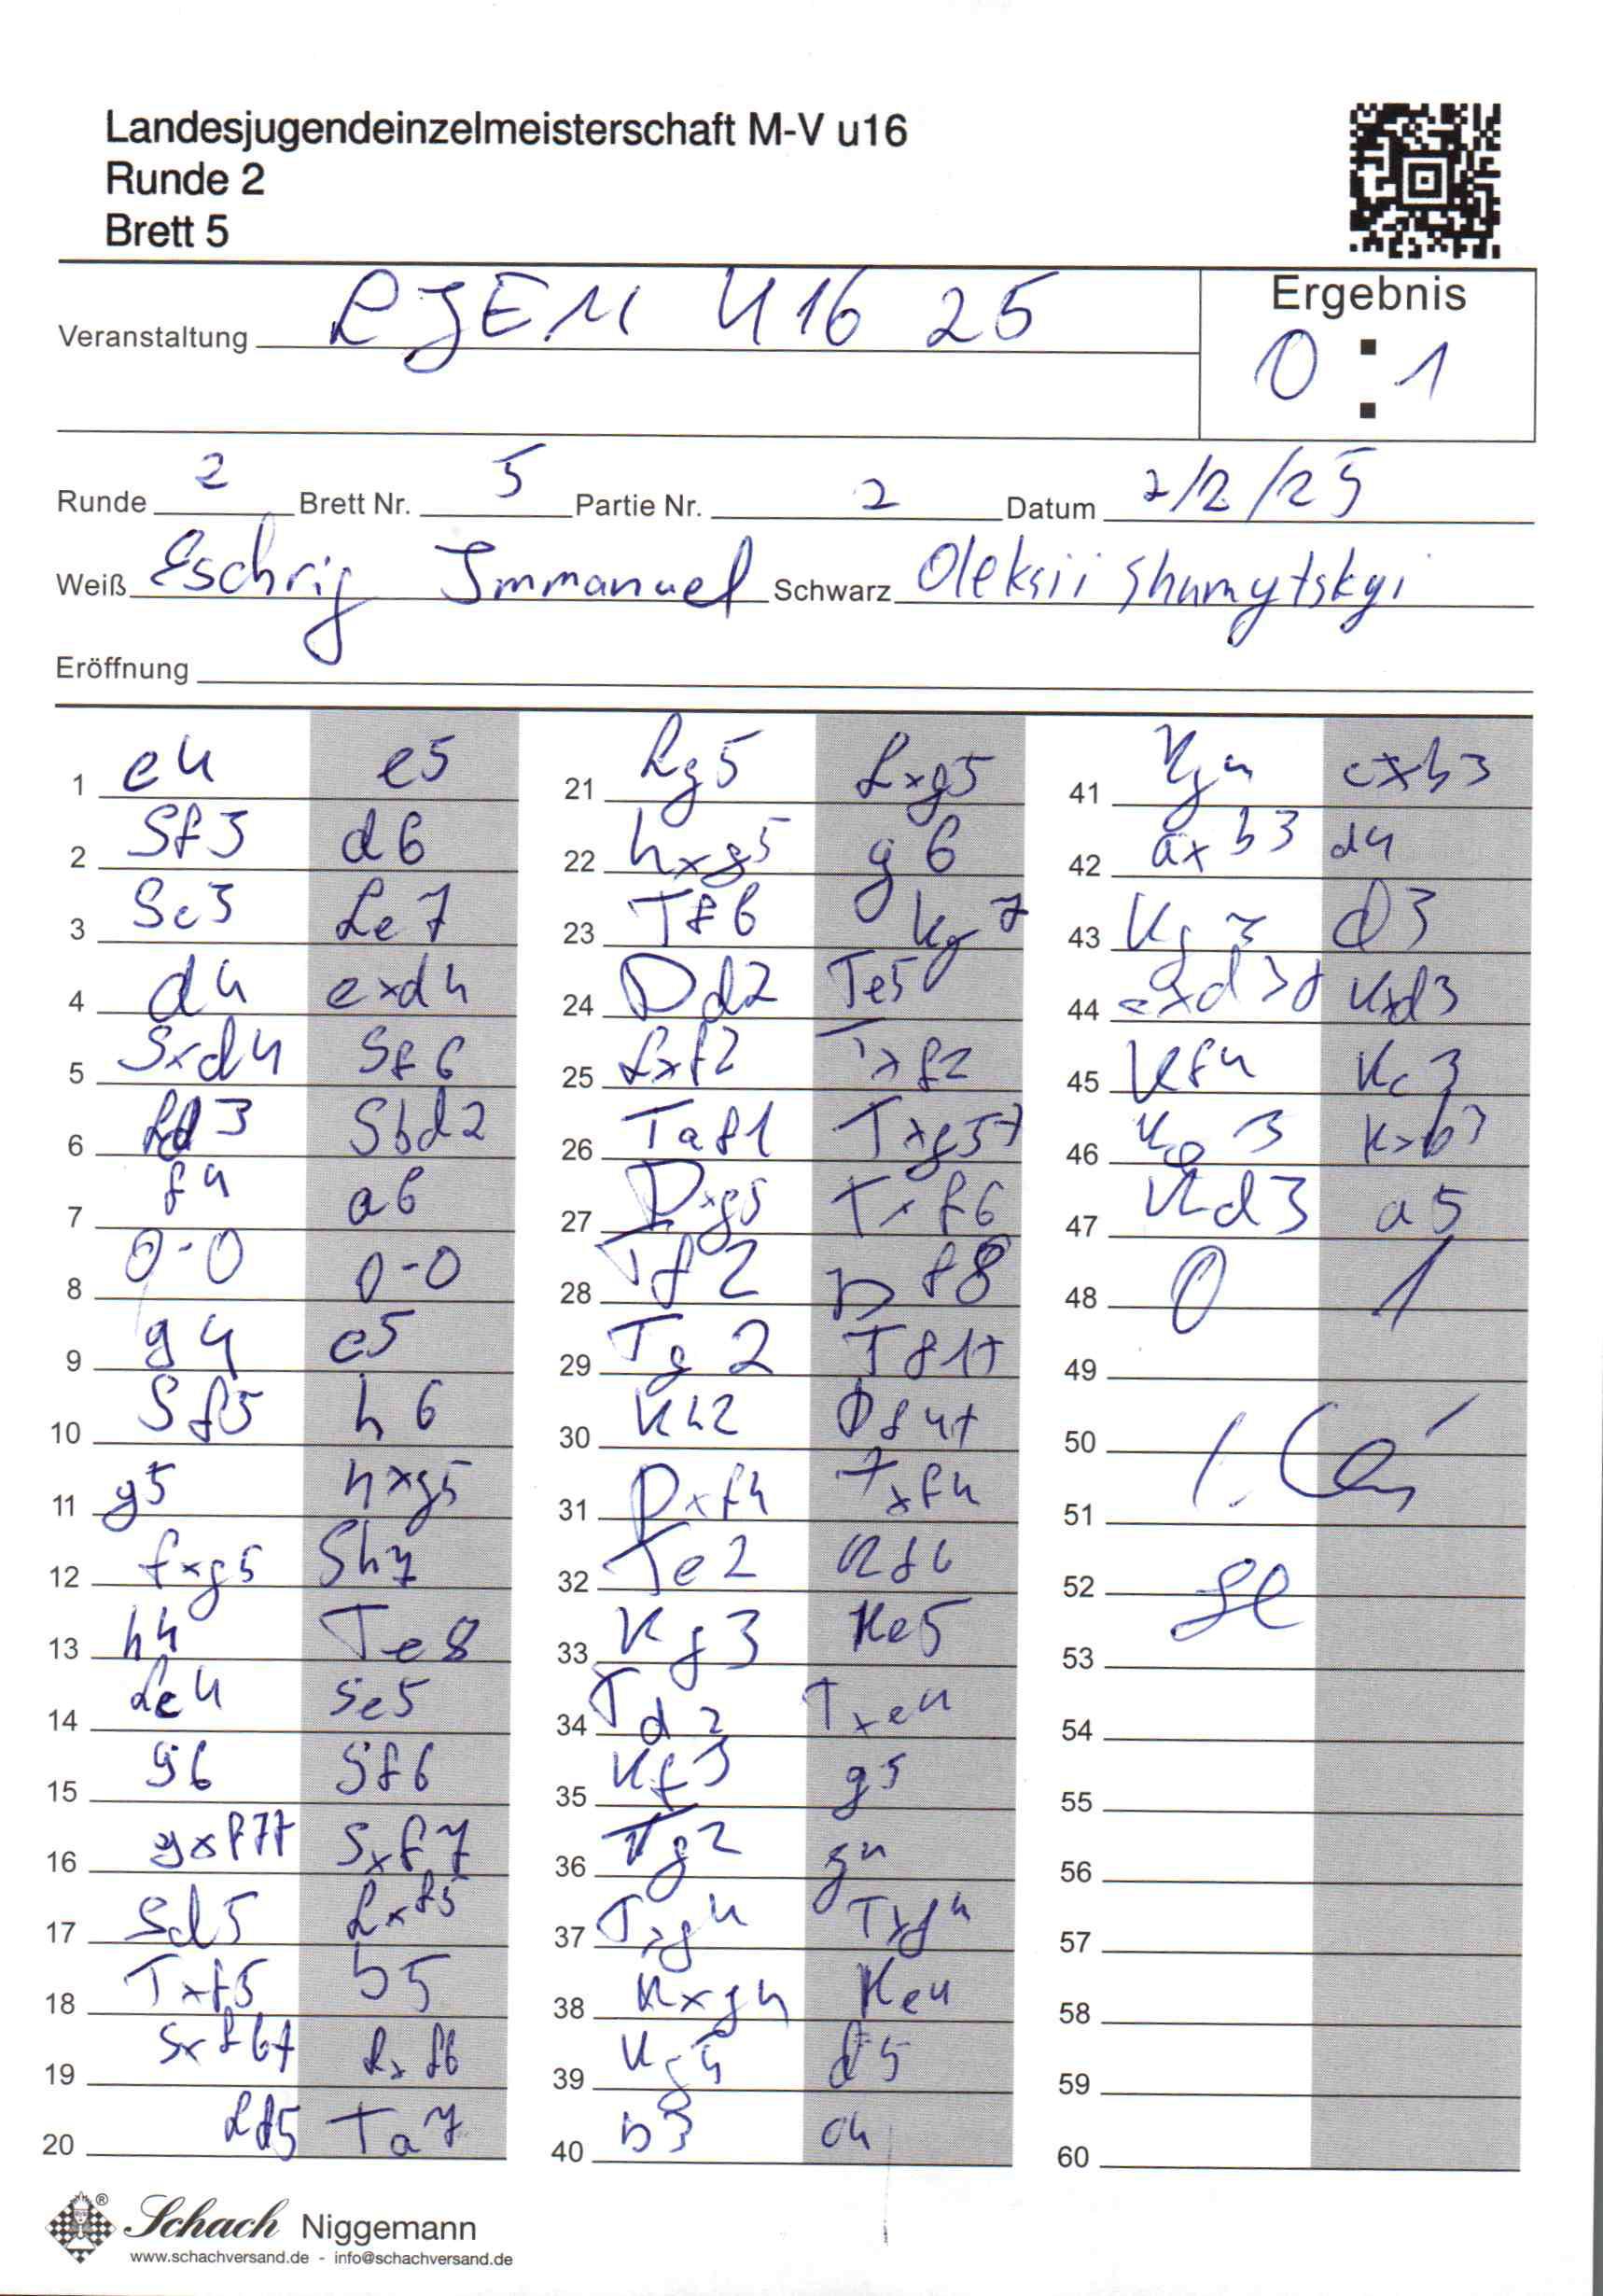 Landesjugendeinzelmeisterschaft M-V u16
Runde 2
Brett 5
Veranstaltung LJEM U16 25
Ergebnis
0 : 1
Runde 2 Brett Nr. 5 Partie Nr. 2 Datum 2/2/25
Weiß Eschrig Immanuel Schwarz Oleksii Shumytskyi
Eröffnung
1 e4 e5
2 Sf3 d6
3 Sc3 Le7
4 d4 exd4
5 Sxd4 Sf6
6 Ld3 Sbd2
7 f4 a6
8 0-0 0-0
9 g4 c5
10 Sf5 h6
11 g5 hxg5
12 fxg5 Sh7
13 h4 Te8
14 Lc4 Se5
15 g6 Sf6
16 gxf7+ Sxf7
17 Sd5 Lxf5
18 Txf5 b5
19 Sxf6+ Lxf6
20 Ld5 Ta7
21 Lg5 Lxg5
22 hxg5 g6
23 Tf6 Kg7
24 Dd2 Te5
25 Lxf7 Txf7
26 Taf1 Txg5+
27 Dxg5 Txf6
28 Tf2 Df8
29 Tg2 Tf1+
30 Kh2 Df4+
31 Dxf4 Txf4
32 Te2 Kf6
33 Kg3 Ke5
34 Td2 Txe4
35 Kf3 g5
36 Tg2 g4
37 Txg4 Txg4
38 Kxg4 Ke4
39 Kg5 d5
40 b3 c4
41 Kg4 cxb3
42 axb3 d4
43 Kg3 d3
44 cxd3+ Kxd3
45 Kf4 Kc3
46 Ke3 Kxb3
47 Kd3 a5
48 0 1
49
50
51
52
53
54
55
56
57
58
59
60
Schach Niggemann
www.schachversand.de - info@schachversand.de